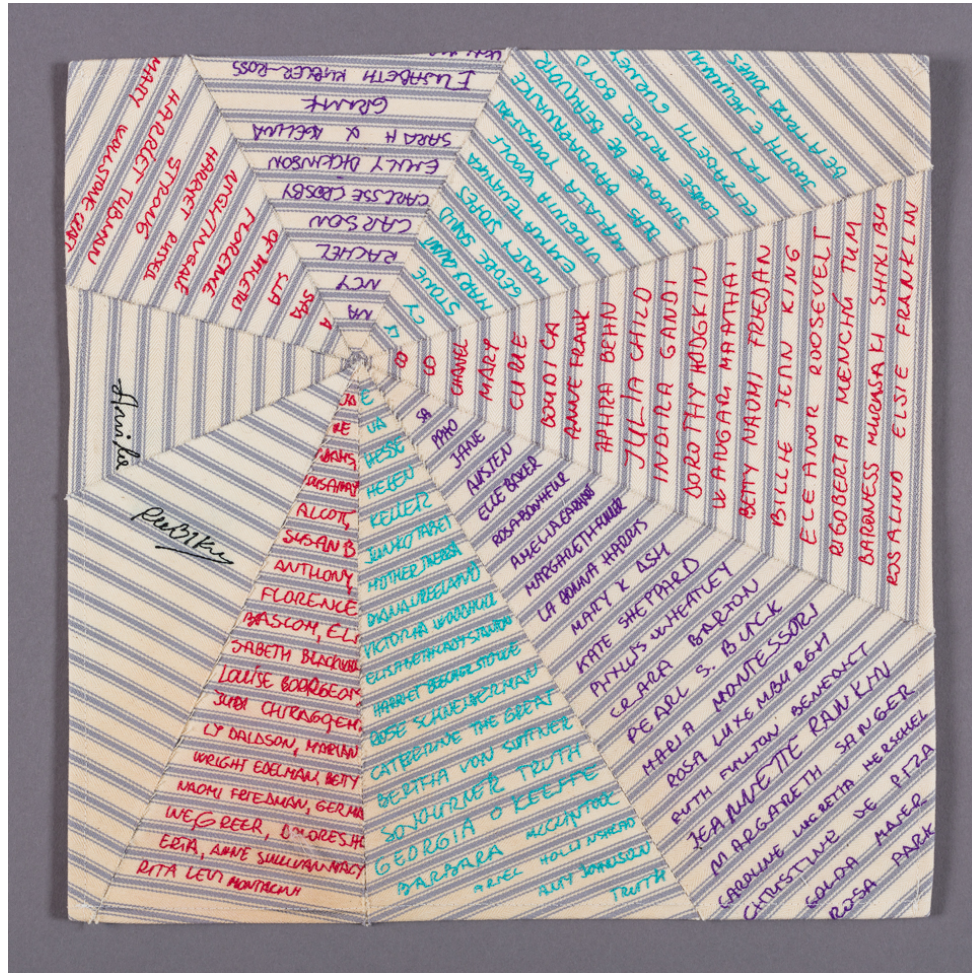 MARY WOLLSTONE CRAFT
HARRIET TUBMAN
STRONG
HARRYET RUSSEL
NIGHTINGALE
FLORENCE
OF MILETO
SIA
SPA
A
ELISABETH KUBLER-ROSS
GRIMKE
SARAH & ANGELINA
EMILY DICKENSON
CARESSE CROSBY
CARSON
RACHEL
NCY
NA
BEATRIX JONES
JUDY E HEUMANN
FRY
ELIZABETH GURNEY
LOUISE ARNER BOYD
SIMONE DE BEAUVOIR
SIRIMAVO BANDARANAIKE
MALALA YOUSAFZAI
VIRGINIA WOOLF
EMMA TENAYUCA
MARY JONES
GEORE SAND
MARY QUANT
STONE
CY
CO
CO
CHANEL
MARY
CURIE
BOUDICA
ANNE FRANK
APHRA BEHN
JULIA CHILD
INDIRA GANDI
DOROTHY HODGKIN
WANGARI MAATHAI
BETTY NAOMI FRIEDAN
BILLIE JEAN KING
ELEANOR ROOSEVELT
RIGOBERTA MENCHÚ TUM
BARONESS MURASAKI SHIKIBU
ROSALIND ELSIE FRANKLIN
SA
PPHO
JANE
AUSTEN
ELLE BAKER
ROSA BONHEUR
AMELIA EARHART
MARGARETH FULLER
LA DONNA HARRIS
MARY K ASH
KATE SHEPPARD
PHYLLIS WHEATLEY
CRARA BARTON
PEARL S. BUCK
MARIA MONTESSORI
ROSA LUXEMBURGH
RUTH FULTON BENEDICT
JEANNETTE RANKIN
MARGARETH SANGER
CAROLINE LUCRETIA HERSCHEL
CHTUSTINE DE PIZA
GOLDA MAIER
ROSA PARK
E
VA
HESSE
HELEN
KELLER
JUNKO TABEI
MOTHER THERESA
DIANA VREELAND
VICTORIA WOODHULL
ELISABETH CADY STANTON
HARRIET BEECHER STOWE
ROSE SCHNEIDERMAN
CATERRINE THE GREAT
BERTHA VON SUTTNER
SOJOURNER TRUTH
GEORGIA O KEEFFE
BARBARA MCCLINTOCK
ARIEL HOLLINSHEAD
AMY JOHNSON
TRUTH
RE
ALCOTT,
SUSAN B
ANTHONY,
FLORENCE
BASCOM, ELI
SABETH BLACKWELL
LOUISE BOORGEOIS
JUDI CHICAGO, EM
LY DALDSON, MARIAN
WRIGHT EDELMAN, BETY
NAOMI FRIEDMAN, GERMA
INE, GREER, DOLORES, HU
ERTA, ANNE SULLIVAN MACY
RITA LEVI MONTALCINI